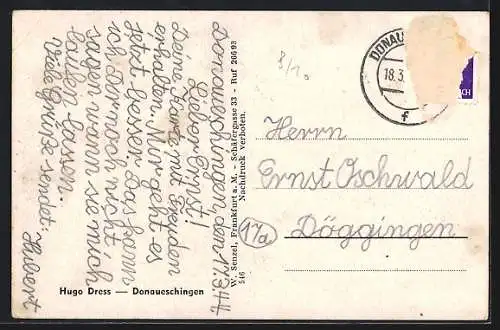 Donaueschingen den 17.3.44
Lieber Ernst!
Deine Karte mit Freuden
erhalten. Mir geht es
jetzt besser. Das kann
ich Dir noch nicht
sagen wann sie mich
laufen lassen.
Viele Grüße sendet:
Hubert
Hugo Dress — Donaueschingen
W. Senzel, Frankfurt a. M. - Schäfergasse 33 - Ruf 26693
Nachdruck verboten.
546
8/10
DONAUES
18.3.
f
CH
Herrn
Ernst Oschwald
17a
Döggingen